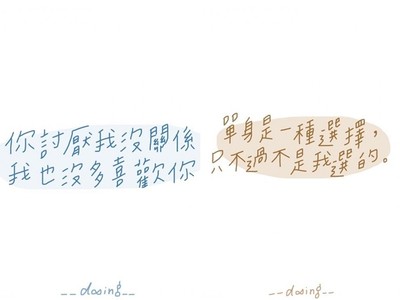 你討厭我沒關係
我也沒多喜歡你
__dosing__
單身是一種選擇，
只不過不是我選的。
__dosing__